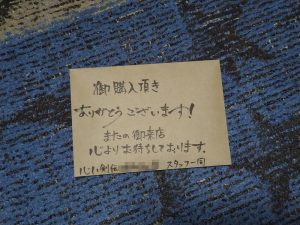 御購入頂き
ありがとうございます!
またの御来店
心よりお待ちしております。
スタッフ一同